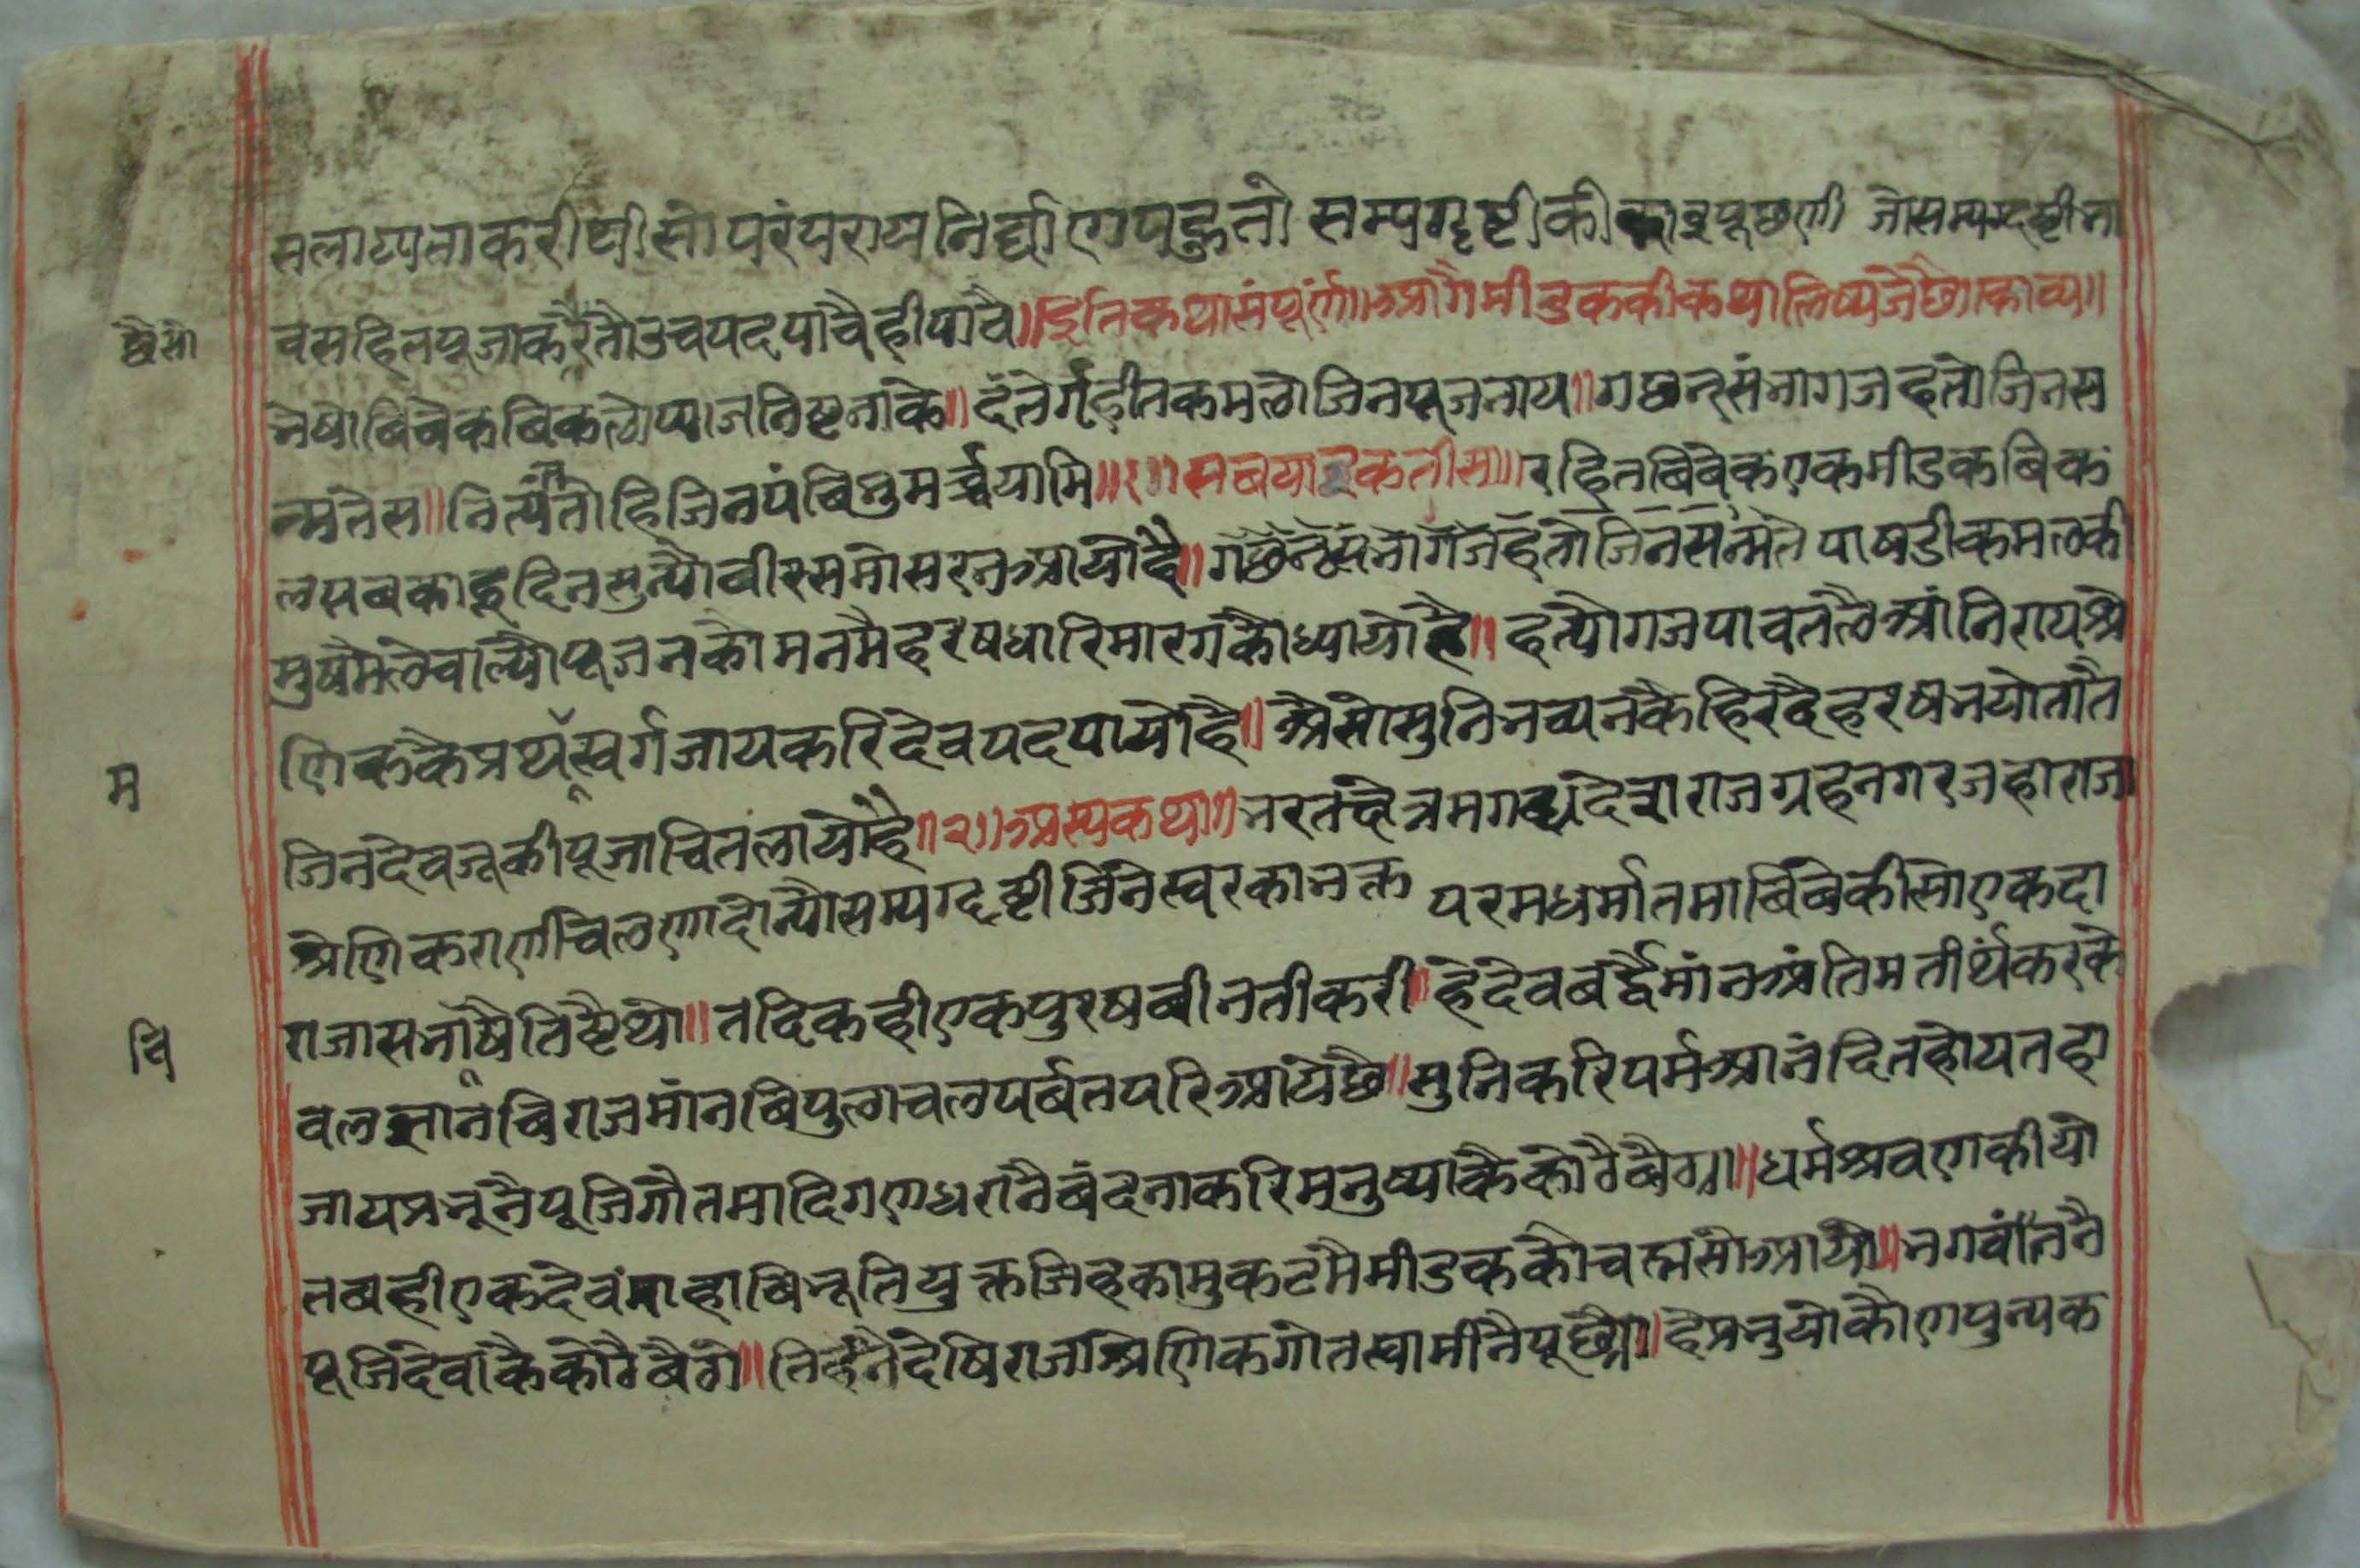 सलाप्यताकरीछीसोपरंपरायनिर्वाणपहुतो सम्यगदृष्टीकीकाइपूछणी जोसम्यग्दृष्टीभा
वसहितपूजाकरैतौउचपदपावैहीपावै॥इतिकथासंपूर्ण॥आगैमीडककीकथालिष्यजेछै॥काव्य॥
भेषोबिबेकबिकलोप्यजनिष्टनाके॥दंतेर्गृहीतकमलोजिनपूजनाय॥गछन्सभागजहतोजिनस
न्मतेस॥नित्यंततोहिजिनपंबिभुमर्च्चयामि॥१॥सबयाइकतीसा॥रहितबिबेकएकमीडकबिक
लपबकाहूदिनसुन्यौबीरसमोसरनआयोहै॥गछन्सभागजहतोजिनसन्मते पाषडीकमलकी
मुषमैलेचाल्योपूजनकौमनमैहरषधारिमारगकौध्यायोहै॥हत्यौगजपावतलैआंनिरायश्रे
णिककैप्रथमस्वर्गजायकरिदेवपदपायोहै॥असोसुनिभव्यनकैहिरदैहरषभयोतातै
जिनदेवजूकीपूजाचितलायोहै॥२॥अस्यकथा॥भरतक्षेत्रमगधदेशराजग्रहनगरजहाराजा
श्रेणिकराणीचेलणादोन्यौसम्यग्दृष्टीजिनेस्वरकाभक्त परमधर्मातमाबिबेकीसोएकदा
राजासभामैतिष्टैथो॥तदिकहीएकपुरषबीनतीकरी॥हेदेवबर्द्धमांनअंतिमतीर्थंकरके
वलज्ञानबिराजमांनबिपुलाचलपर्बतपरिआयेछै॥सुनिकरिपर्मआनंदितहोयतहा
जायप्रभूनैपूजिगौतमादिगणधरानैबंदनाकरिमनुष्याकैकोठैबैठा॥धर्मश्रवणकीयो
तबहीएकदेवंमाहाबिभूतियुक्तजिहकामुकटमैमीडककौचह्नसोआयो॥भगवांननै
पूजिदेवाकैकोठैबैठो॥तिहनैदेषिराजाश्रेणिकगोतस्वामीनैपूछी॥हेप्रभुयोकौणपुन्यक
छैसो
म
बि